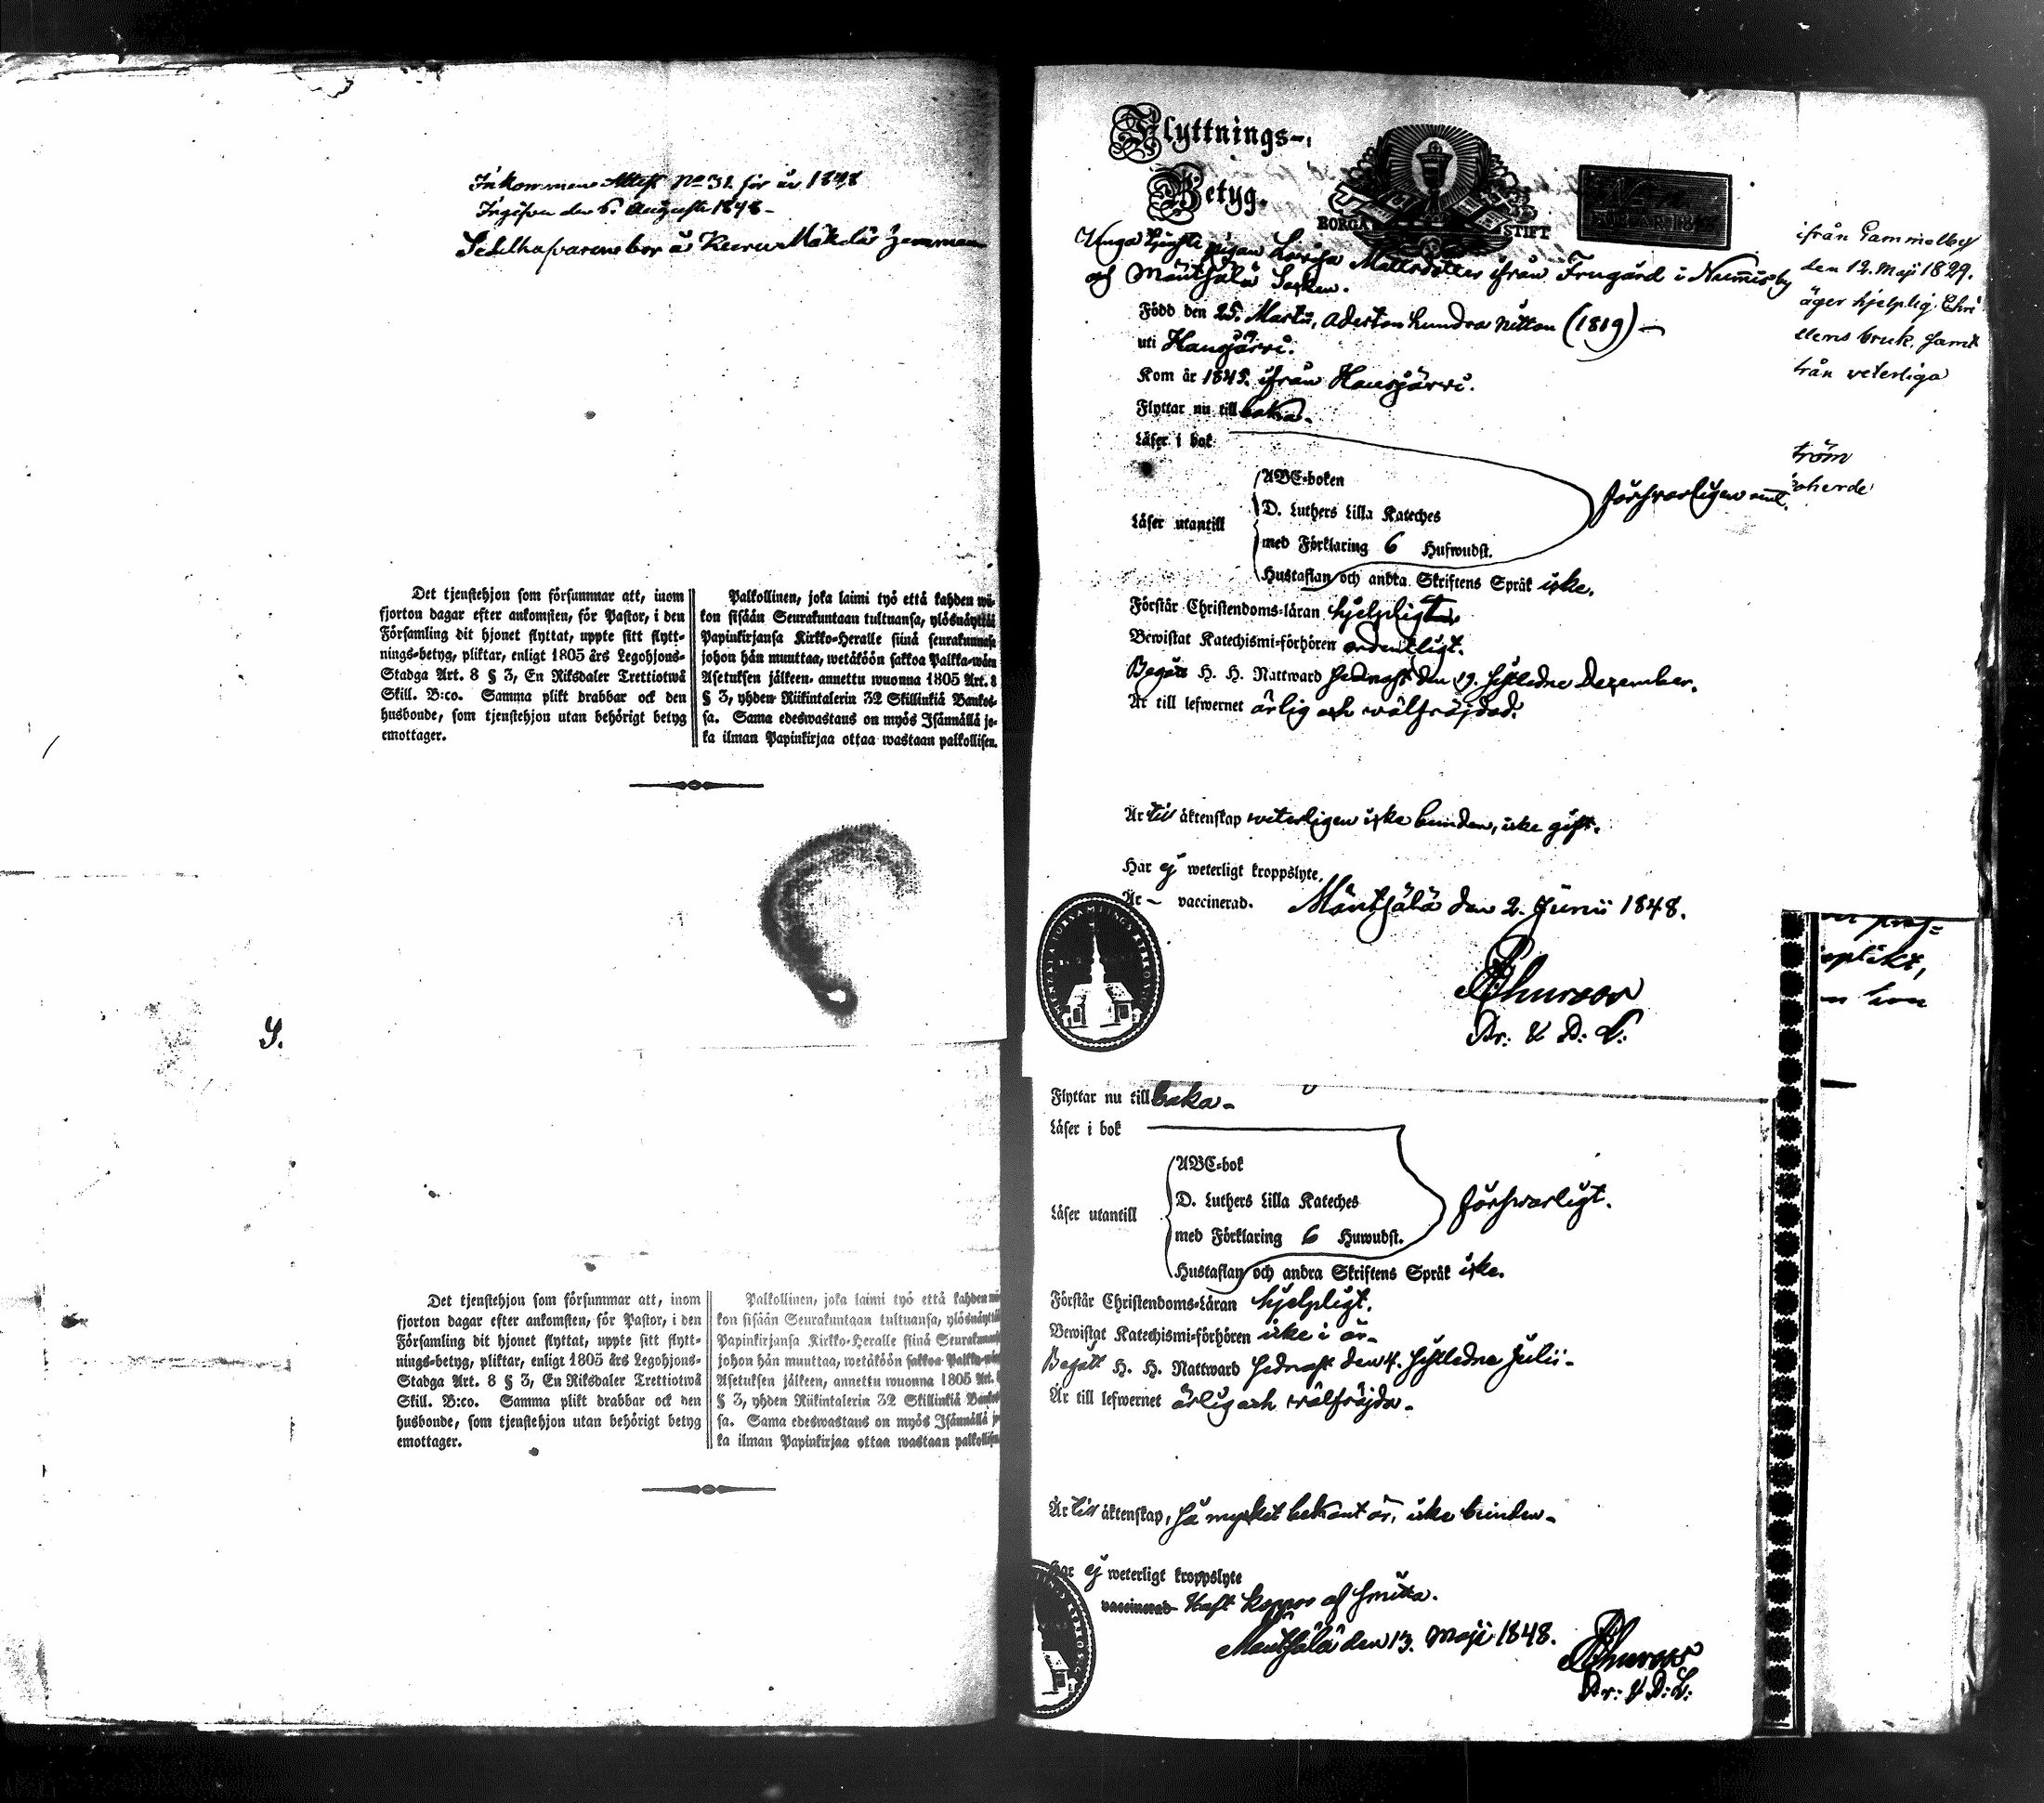 Inkommen Attest No 31. för år 1848
Ingifven den 6. Augusti 1848-
Sedelhafvaren bor å
Det tjenstehjon som försummar att, inom
fjorton dagar efter ankomsten, för Pastor, i den
Församling dit hjonet flyttat, uppte sitt flytt-
nings-betyg, pliktar, enligt 1805 års Legohjons-
Stadga Art. 8 § 3, En Riksdaler Trettiotwå
Skill. B:co. Samma plikt drabbar ock den
husbonde, som tjenstehjon utan behörigt betyg
emottager.
Palkollinen, joka laimi työ että kahden wii-
kon sisään Seurakuntaan tultuansa, ylösnäyttää
Papinkirjansa Kirkko-Heralle siinä seurakunnasa
johon hän muuttaa, wetäköön sakkoa Palkka-wäen
Asetuksen jälkeen, annettu wuonna 1805 Art. 8
§ 3, yhden Riikintalerin 32 Skillinkiä Bankos-
sa. Sama edeswastaus on myös Isännällä jo-
ka ilman Papinkirjaa ottaa wastaan palkollisen.
Det tjenstehjon som försummar att, inom
fjorton dagar efter ankomsten, för Pastor, i den
Församling dit hjonet flyttat, uppte sitt flytt-
nings-betyg, pliktar, enligt 1805 års Legohjons-
Stadga Art. 8 § 3, En Riksdaler Trettiotwå
Skill. B:co. Samma plikt drabbar ock den
husbonde, som tjenstehjon utan behörigt betyg
emottager.
Palkollinen, joka laimi työ että kahden
kon sisään Seurakuntaan tultuansa, ylösnäyttä
Papinkirjansa Kirkko-Heralle siinä Seurakunnasa
johon hän muuttaa, wetäköön sakkoa Palkka-
Asetuksen jälkeen, annettu wuonna 1805 Art.
§ 3, yhden Riikintalerin 32 Skillinkiä Bankos
sa. Sama edeswastaus on myös Isännällä jo
ka ilman Papinkirjaa ottaa wastaan palkollisen
Flyttnings-
Betyg.
BORGÅ STIFT
pigan Lovisa Mattsdotter ifrån Frugård i Nummisby
och Mäntsälä Socken.
Född den 25. Martii, adertonhundra nitton (1819)-
uti Hausjärvi.
Kom år 1845. ifrån Hausjärvi.
Flyttar nu till baka.
Läser i bok
ABC-boken
Läser utantill
D. Luthers Lilla Kateches
med Förklaring 6 Hufwudst.
Hustaflan och andra Skriftens Språk icke.
Förswarligen
Förstår Christendoms-läran hjelpligt
Bewistat Katechismi-förhören ordentligt.
Begått H. H. Nattward sednast den 19. sistledne December.
Är till lefwernet ärlig och wälfräjdad.
Är till äktenskap weterligen icke bunden, icke gift.
Har ej weterligt kroppslyte,
Är – vaccinerad.
Mäntsälä den 2. Junii 1848.
ifrån Gammelby
den 12. Maji 1829.
äger hjelplig Chri
dens bruk. samt
från veterliga
tröm
oherde
Flyttar nu till baka-
Läser i bok
ABC-bok
Läser utantill
D. Luthers Lilla Kateches
med Förklaring 6 Huwudst.
Hustaflan och andra Skriftens Språk icke.
förswarligt.
Förstår Christendoms-Läran hjelpligt.
Bewistat Katechismi-förhören icke i år-
Begått H. H. Nattward sednast den 4. sistledne Julii-
Är till lefwernet ärlig och wälfräjda-
Är till äktenskap, så mycket bekant är, icke bunden-
Har ej weterligt kroppslyte
vaccinerad Haft koppor af smitta.
Mäntsälä den 13. Maji 1848.